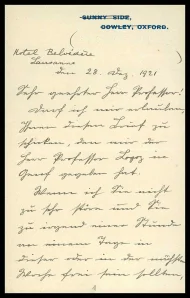 SUNNY SIDE,
COWLEY, OXFORD.
Hotel Belvédère
Lausanne
den 28. Dez 1921
Sehr geehrter Herr Professor!
Darf ich mir erlauben
Ihnen diesen Brief zu
schicken, den mir der
Herr Professor Logoz in
Genf gegeben hat.
Wenn ich Sie nicht
zu sehr störe und Sie
zu irgend einer Stunde
an einem Tage in
dieser oder in der nächsten
Woche frei sein sollten,